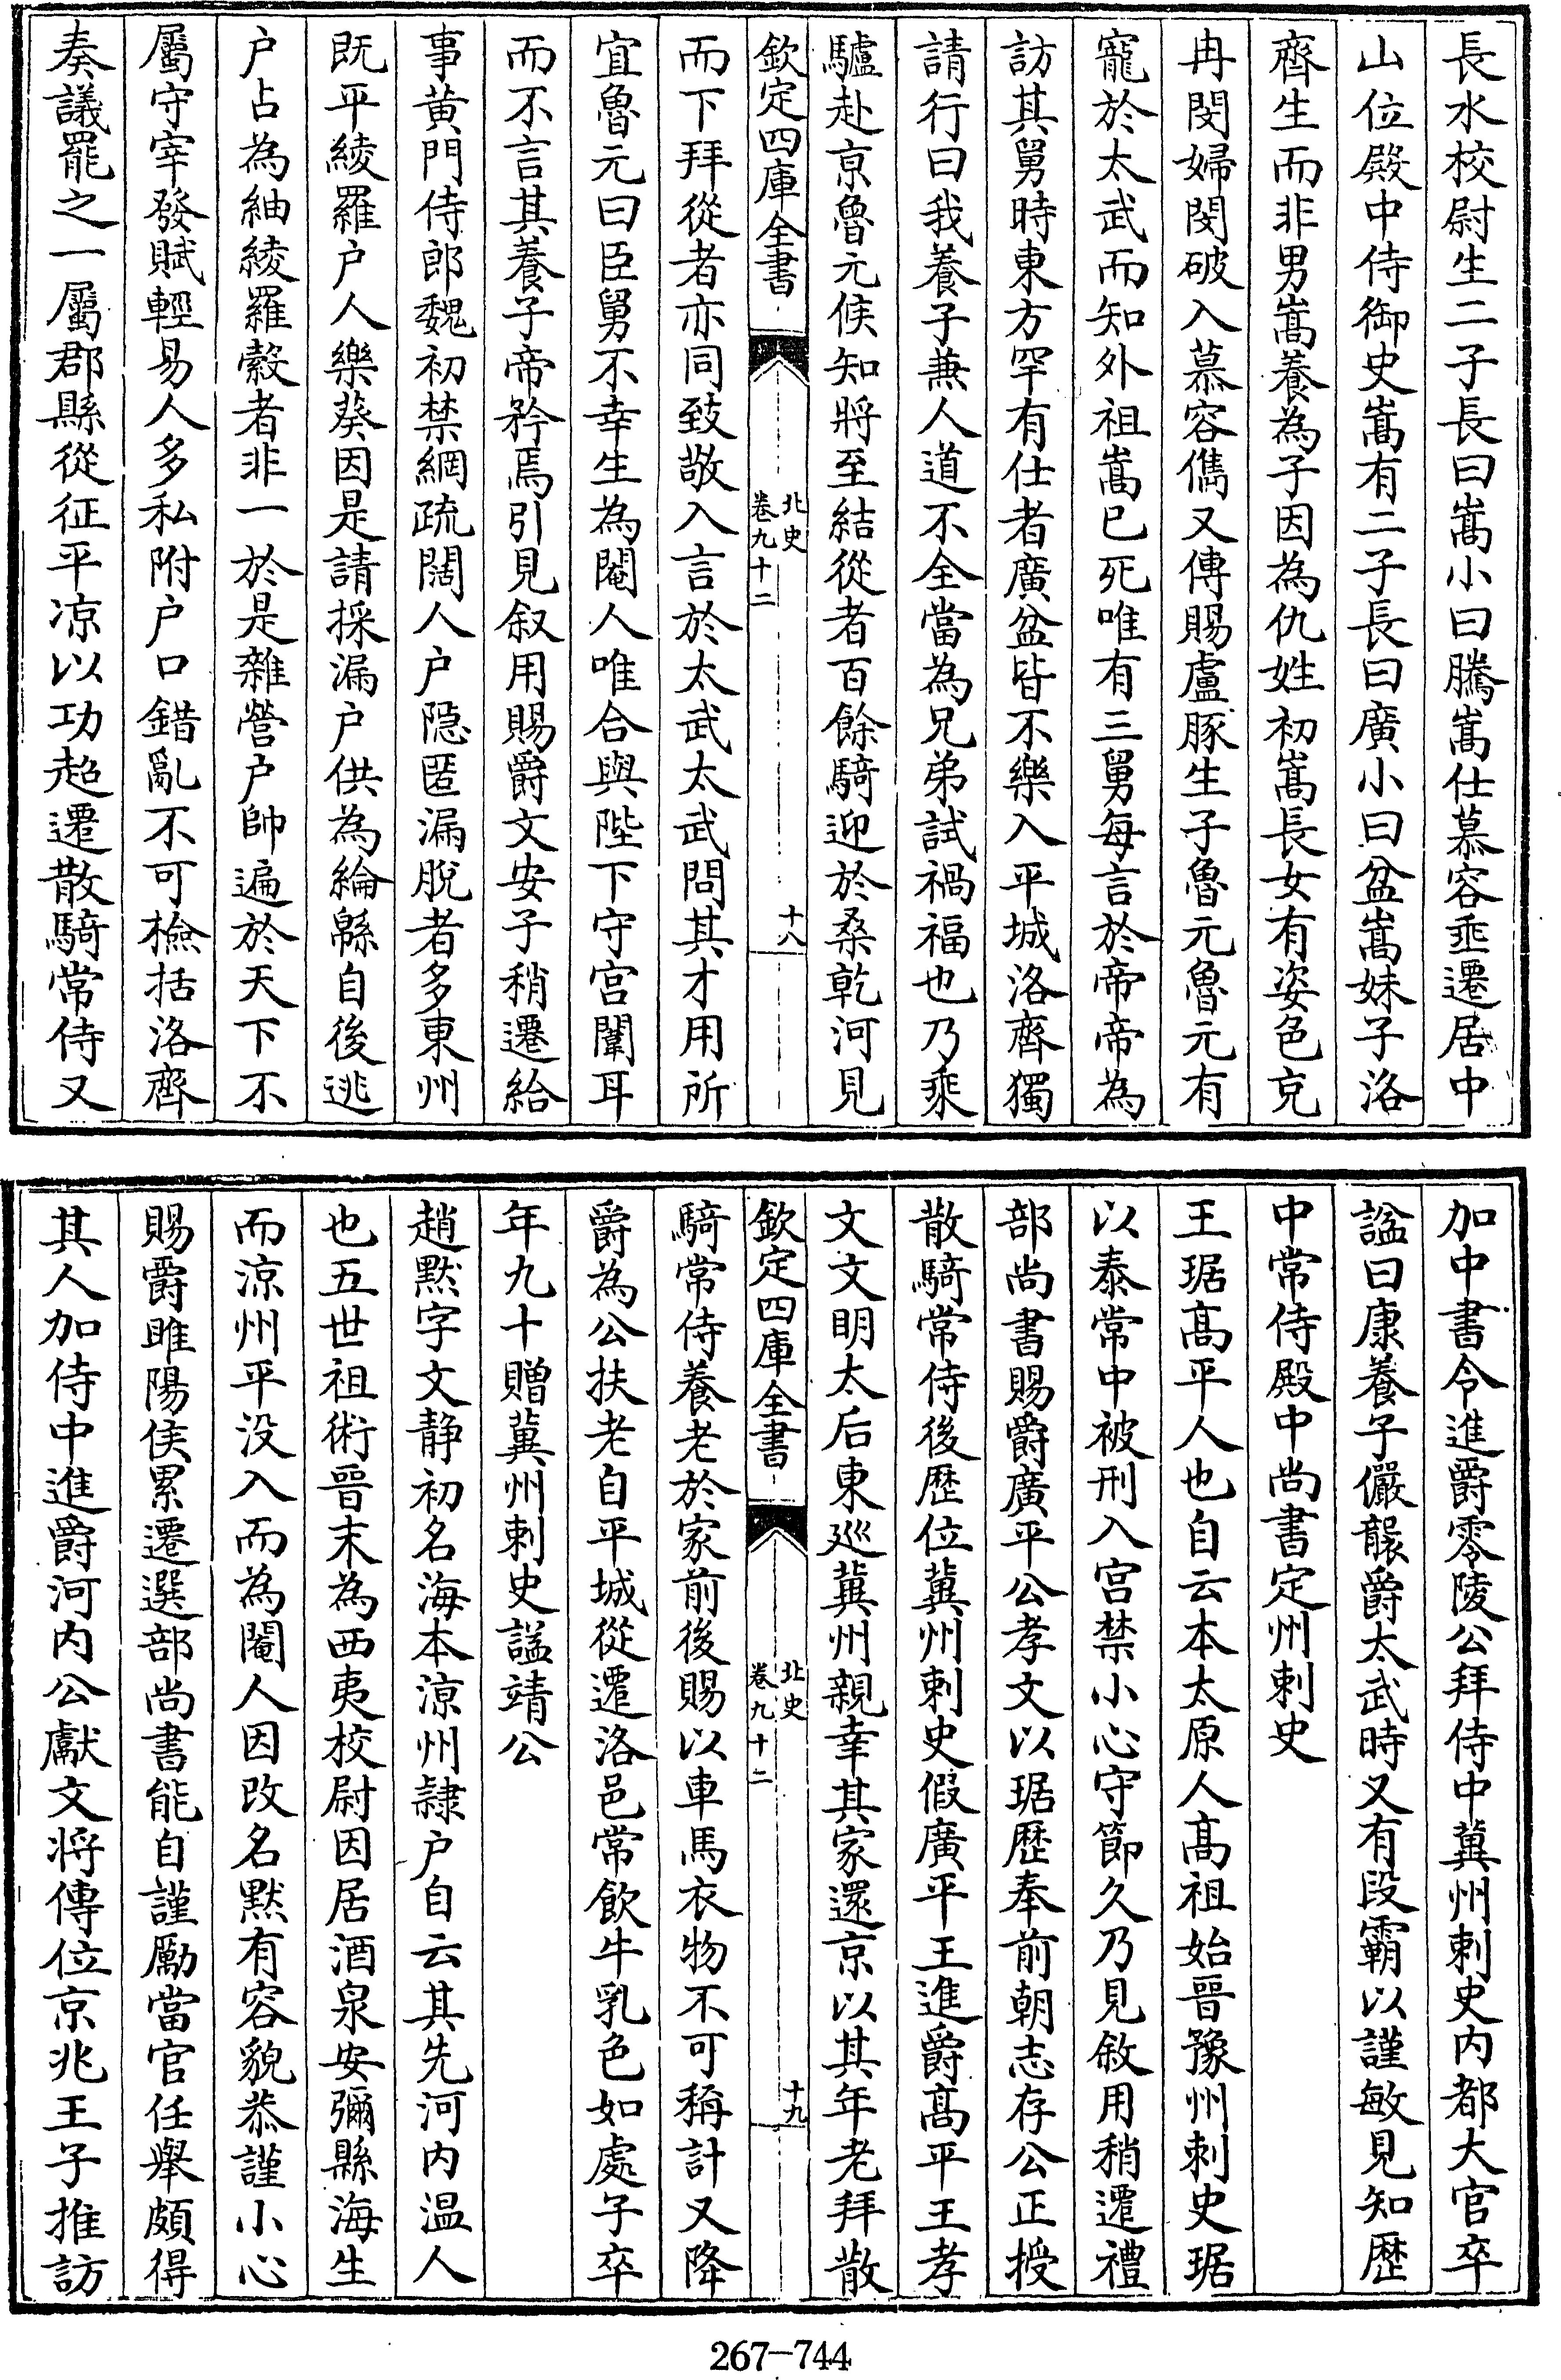 長水校尉生二子長曰嵩小曰騰嵩仕慕容垂遷居中
山位殿中侍御史嵩有二子長曰廣小曰盆嵩妹子洛
齊生而非男嵩養為子因為仇姓初嵩長女有姿色充
冉閔婦閔破入慕容儁又傳賜盧豚生子魯元魯元有
寵於太武而知外祖嵩已死唯有三舅每言於帝帝為
訪其舅時東方罕有仕者廣盆皆不樂入平城洛齊獨
請行曰我養子兼人道不全當為兄弟試禍福也乃乘
驢赴京魯元候知將至結從者百餘騎迎於桑乾河見
欽定四庫全書
北史
卷九十二
十八
而下拜從者亦同致敬入言於太武太武問其才用所
宜魯元曰臣舅不幸生為閹人唯合與陛下守宫闈耳
而不言其養子帝矜焉引見叙用賜爵文安子稍遷給
事黄門侍郎魏初禁網疏闊人户隐匿漏脱者多東州
既平綾羅户人樂葵因是請採漏户供為綸緜自後逃
户占為紬綾羅縠者非一於是雜營户帥遍於天下不
屬守宰發賦輕易人多私附户口錯亂不可檢括洛齊
奏議罷之一屬郡縣從征平凉以功超遷散騎常侍又
加中書令進爵零陵公拜侍中冀州刺史内都大官卒
諡曰康養子儼襲爵太武時又有段霸以謹敏見知歴
中常侍殿中尚書定州刺史
王琚髙平人也自云本太原人髙祖始晉豫州刺史琚
以泰常中被刑入宫禁小心守節久乃見敘用稍遷禮
部尚書賜爵廣平公孝文以琚歴奉前朝志存公正授
散騎常侍後歴位冀州刺史假廣平王進爵髙平王孝
文文明太后東巡冀州親幸其家還京以其年老拜散
欽定四庫全書
北史
卷九十二
十九
騎常侍養老於家前後賜以車馬衣物不可稱計又降
爵為公扶老自平城從遷洛邑常飲牛乳色如處子卒
年九十贈冀州刺史諡靖公
趙黙字文静初名海本涼州隷户自云其先河内温人
也五世祖術晉末為西夷校尉因居酒泉安彌縣海生
而涼州平没入而為閹人因改名黙有容貌恭謹小心
賜爵睢陽侯累遷選部尚書能自謹勵當官任舉頗得
其人加侍中進爵河内公獻文將傳位京兆王子推訪
267-744